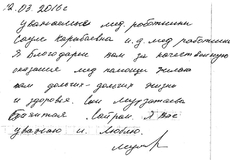 12.03.2016г
уважаемые мед. работники
Сауле Карабаевна и.д. мед работники
Я благодарен вам за качественную
оказания мед помощи желаю
вам долгих-долгих жизни
и здоровья. Сын
Сайрам. Я вас
уважаю и. Люблю.